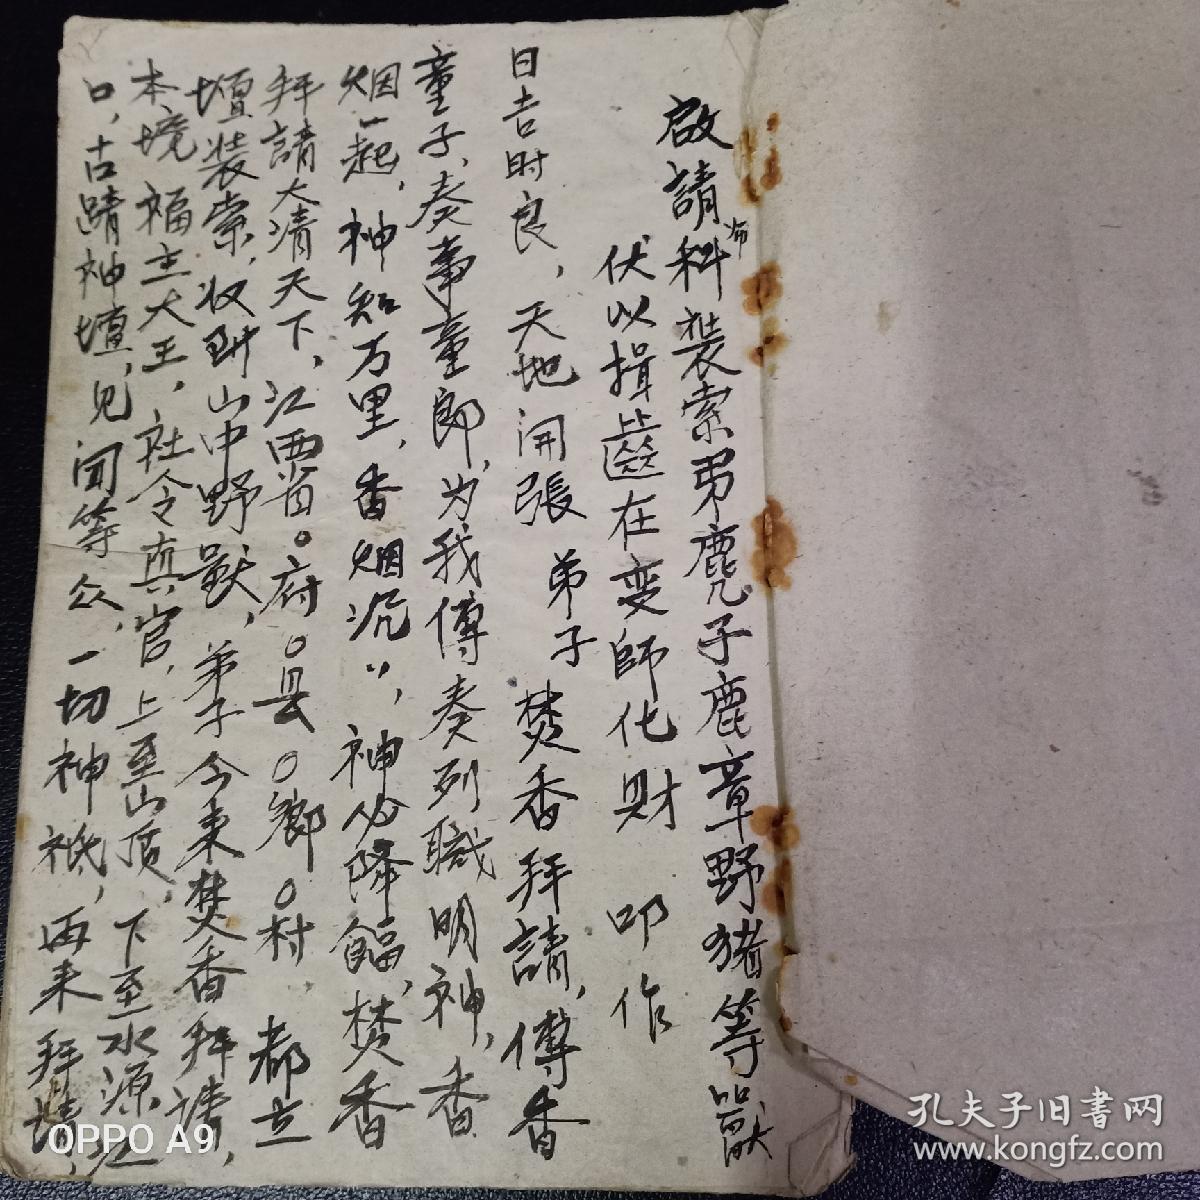 啟請师科装索弟麂子鹿章野猪等獸
伏以揖齒在变師化財 叩作
日吉时良，天地開張 弟子焚香拜請，傳香
童子，奏事童郎，为我傳奏列職明神，香
烟一起，神知万里，香烟沉〃，神必降臨，焚香
拜請大清天下，江西省。府。县。鄉。村 都立
壇装索，收斬山中野獸，弟子今来焚香拜請，
本境福主大王，社令真官，上至山頂，下至水源江
口，古跡神壇，见闻等众，一切神祗，再来拜請，
OPPO A9
孔夫子旧书网
www.kongfz.com